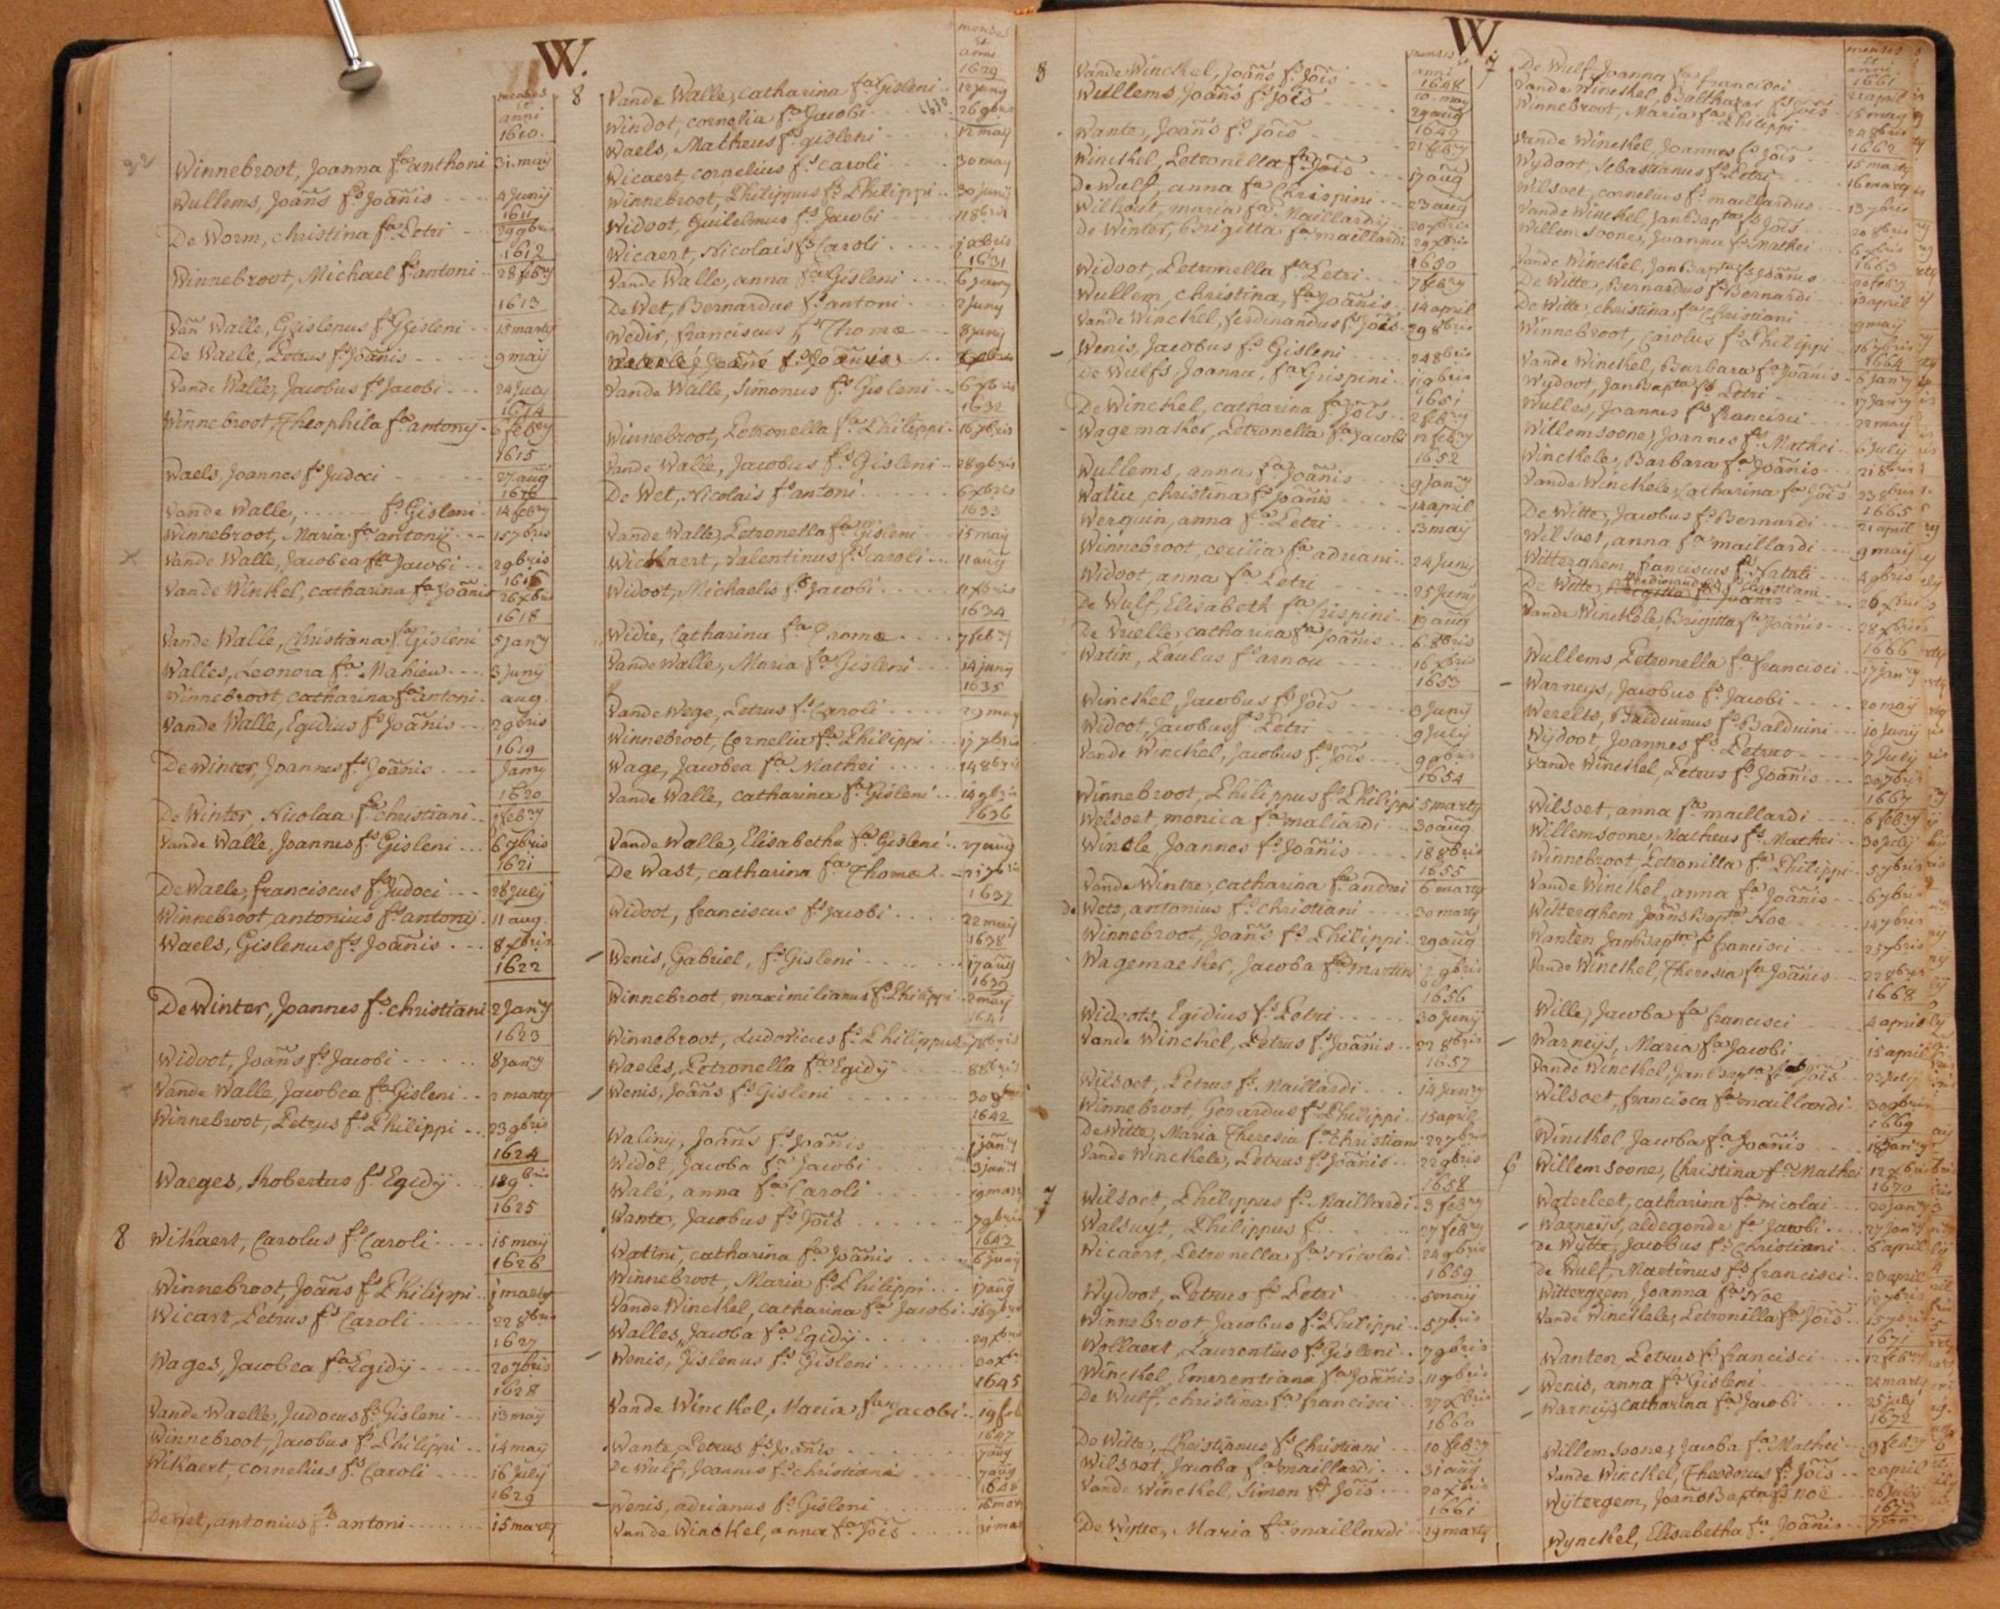 W.
menses
et
anni
1610.
Winnebroot, Joanna fa anthoni 31 maij
Wullems, Joañs fs Joãnis 4 Junij
1611
De Worm, christina fa Petri 29 9bris
1612
Winnebroot, Michael fs antoni 28 febry
1613
Van Walle, Gislenus fs Gisleni 15 marty
De Waele, Petrus fs Joãnis 9 maij
Vande Walle, Jacobus fs Jacobi 24 July
1614
Winnebroot, Theophila fa antony 6 febry
1615
Waels Joannes fs Judoci 27 aug
1616
Vande Walle, fs Gisleni 14 febry
Winnebroot, Maria fa antonij 15 7bris
Vande Walle, Jacobea fa Jacobi 29bris
Vande Winkel, catharina fa Joãnis 26 xbris
1618
Vande Walle, Christiana fa Gisleni 5 Janry
Walles, Leonora fa Mahieu 3 Junij
Winnebroot catharina fa antoni aug
Vande Walle, Egidius fs Joãnis 29bris
1619
De Winter, Joannes fs Joãnis Janry
1620
De Winter, Nicolaa fa christiani febry
Vande Walle, Joannes fs Gisleni 6 7bris
1621
De Waele, franciscus fs Judoci 28 July
Winnebroot antonius fs antonij 11 aug
Waels, Gislenus fs Joãnis 8 xbris
1622
De Winter, Joannes fs christiani 2 Janry
1623
Widoot, Joañs fs Jacobi 8 Janry
Vande Walle Jacobea fa Gisleni 2 marty
Winnebroot, Petrus fs Philippi 23 9bris
1624
Waeges, Robertus fs Egidij 18 9bris
1625
8 Wikaert, Carolus fs Caroli 15 maij
1626
Winnebroot, Joañs fs Philippi 1 marty
Wicart, Petrus fs Caroli 22 8bris
1627
Wages, Jacobea fa Egidij 20 7bris
1628
Vande Waelle, Judocus fs Gisleni 13 maij
Winnebroot, Jacobus fs Philippi 14 maij
Wikaert, cornelius fs Caroli 16 July
1629
De Wet, antonius fs antoni 15 marty
menses
et
anni
1629
8 Vande Walle, catharina fa Gisleni 12 Juny
Windot, cornelia fa Jacobi 1630 26 9bris
Waels, Matheus fs gisleni 12 maij
Wicaert cornelius fs caroli 30 maij
Winnebroot, Philippus fs Philippi 30 Junij
Widoot, Guilelmus fs Jacobi 11 8bris
Wicaert, Nicolais fs Caroli 1 xbris
1631
Vande Walle, anna fa Gisleni 6 Janry
De Wet, Bernardus fs antoni 2 Juny
Wedir, franciscus fs Thomæ 8 Juny
Vande Walle, Simonus fs Gisleni 6 xbris
1632
Winnebroot, Petronella fa Philippi 16 7bris
Vande Walle, Jacobus fs Gisleni 28 9bris
De Wet, Nicolais fs antoni 6 xbris
1633
Vande Walle, Petronella fa Gisleni 15 maij
Wickaert, Valentinus fs Caroli 11 aug
Widoot, Michaelis fs Jacobi 11 xbris
1634
Widie, Catharina fa Thomæ 7 febry
Vande Walle, Maria fa Gisleni 14 Juny
1635
Vande Wege, Petrus fs Caroli 29 may
Winnebroot, Cornelia fa Philippi 17 7bris
Wage, Jacobea fa Mathei 14 8bris
Vande Walle, catharina fa Gisleni 14 9bris
1636
Vande Walle, Elisabetha fa Gisleni 27 aug
De Wast, catharina fa Thomæ 21 7bris
1637
Widoot, franciscus fs Jacobi 22 maij
1638
Wenis, Gabriel, fs Gisleni 17 aug
1639
Winnebroot maximilianus fs Philippi 2 maij
1641
Winnebroot, Ludovicus fs Philippus 7bris
Waeles, Petronella fa Egidij 8 8bris
Wenis, Joañs fs Gisleni 30 9bris
1642
Waliny, Joañs fs Joãnis 1 Janry
Widot, Jacoba fa Jacobi 3 Janry
Wale, anna fa Caroli 19 mart
Wante, Jacobus fs Joīs 7 9bris
1643
Watini, catharina fa Joãnis 6 Juny
Winnebroot, Maria fs Philippi 17 aug
Vande Winckel, catharina fa Jacobi 16 9bris
Walles, Jacoba fa Egidij 29 xbris
Wenis, Gislenus fs Gisleni 20 xbr
1645
Vande Winckel, Maria fa Jacobi 19 feb
1647
Wante, Petrus fs Joãnis 7 aug
De Wulf, Joannes fs christiani 7 aug
1648
Wenis, adrianus fs Gisleni 16 mart
Vande Winckel, anna fa Joīs 31 mar
W
menses
et
anni
1648
8 Vande Winckel, Joañs fs Joīs 20 may
Wullems Joañs fs Joīs 29 aug
1649
Wante, Joañs fs Joīs 21 febry
Winckel, Petronella fa Joīs 17 aug
De Wulf, anna fa Chrispini 23 aug
Wilsoet, maria fa Maillardij 20 7bris
De Winter, Brigitta fa maillardi 29 xbris
1650
Widoot, Petronella fa Petri 7 febry
Wullem, christina, fa Joãnis 14 april
Vande Winckel, ferdinandus fs Joīs 29 8bris
Wenis, Jacobus fs Gisleni 24 8bris
De Wulfs Joanna, fa Grispini 19bris
1651
De Winckel, catharina fa Joīs 2 febry
Wagemaker, Petronella fa Jacobi 12 febry
1652
Wullems, anna fa Joãnis 9 Janry
Watiu, christina fs Joãnis 14 april
Werquin, anna fa Petri 13 maij
Winnebroot, cecilia fa adriani 24 Junij
Widoot, anna fa Petri 25 Junij
De Wulf, Elisabeth fa Crispini 19 aug
De Vuelle, catharina fa Joãnis 6 8bris
Watin, Paulus fs arnou 16 xbris
1653
Winckel, Jacobus fs Joīs 3 Junij
Widoot, Jacobus fs Petri 9 July
Vande Winckel, Jacobus fs Joīs 9 9bris
1654
Winnebroot, Philippus fs Philippi 5 marty
Welsoet monica fa maliardi 30 aug
Wincle Joannes fs Joãnis 18 8bris
1655
Vande Wintre, catharina fa andrei 6 marty
De Wets, antonius fs christiani 30 marty
Winnebroot, Joañs fs Philippi 29 aug
Wagemaeker, Jacoba fa martin 29bris
1656
Widoots, Egidius fs Petri 30 Junij
Vande Winckel, Petrus fs Joãnis 22 8bris
1657
Wilsoet, Petrus fs Maillardi 14 Janry
Winnebroot, Gerardus fs Philippi 15 april
De Witte, Maria Theresia fa christiani 22 7bris
Vande Winckele, Petrus fs Joãnis 22 9bris
1658
7 Wilsoet, Philippus fs Maillardi 3 febry
Walsuyt, Philippus fs 27 febry
Wicaert, Petronella fa Nicolai 24 9bris
1659
Wydoot, Petrus fs Petri 6 maij
Winnebroot Jacobus fs Philippi 5 7bris
Wollaert, Laurentius fs Gisleni 7 9bris
Winckel, Emerentiana fa Joãnnis 11 9bris
De Wulf, christina fa francisci 27 xbris
1660
De Witte, Christianus fs christiani 10 febry
Wilsoot, Jacoba fa maillardi 31 aug
Vande Winckel, Simon fs Joīs 20 xbris
1661
De Wytte, Maria fa maillardi 19 marty
menses
et
anni
1661
7 De Wulf, Joanna fa francisci 21 april
Vande Winckel, Balthazar fs Joīs 15 maij
Winnebroot, Maria fa Philippi 24 8bris
1662
Vande Winckel Joannes fs Joīs 15 marty
Wydoot, Sebastianus fs Petri 16 marty
Wilsoet, cornelius fs maillardus 13 7bris
Vande Winckel, Jan Bapta fs Joīs 20 8bris
Willemsoone, Joanna fa Mathei 6 xbris
1663
Vande Winckel, Jan Bapta fs Joãnis 20 febry
De Witte, Bernardus fs Bernardi 10 april
De Witte, christina fa christiani 9 maij
Winnebroot, Carolus fs Philippi 16 7bris
1664
Vande Winckel, Barbara fa Joãnis 6 Janry
Wydoot, Jan Bapta fs Petri 17 Janry
Wulles, Joannes fs francisci 22 may
Willemsoone, Joannes fs Mathei 6 July
Winckele, Barbara fa Joãnis 21 8bris
Vande Winckele, Catharina fa Joīs 23 8bris
1665
De Witte, Jacobus fs Bernardi 21 april
Wilsoet, anna fa maillardi 9 maij
Witterghem, franciscus fs Natali 4 9bris
De Witte, ferdinandus fs Christiani 26 xbris
Vande Winckele, Brigitta fa Joãnis 28 xbris
1666
Wullems Petronella fa francisci 17 Janry
Warneys, Jacobus fs Jacobi 20 maij
Werelts, Balduinus fs Balduini 10 Junij
Wydoot, Joannes fs Petrus 7 July
Vande Winckel, Petrus fs Joãnis 30 7bris
1667
Wilsoet, anna fa maillardi 6 febry
Willemsoone, Matheus fs Mathei 30 July
Winnebroot, Petronilla fa Philippi 5 7bris
Vande Winckel, anna fa Joãnis 6 7bris
Witterghem Joãns Bapta Noe 14 7bris
Wanten Jan Bapta fs francisci 25 7bris
Vande Winckel, Theresia fa Joãnis 22 8bris
1668
Wille, Jacoba fa francisci 4 april
Warneijs, Maria fa Jacobi 15 april
Vande Winckel, Jan Bapta fs Joīs 22 July
Wilsoet, francisca fa maillardi 30 9bris
1669
Winckel Jacoba fa Joãnis 18 Janry
6 Willemsoone, Christina fa Mathei 12 xbris
1670
Waterleet, catharina fa nicolai 20 Janry
Warneijs, aldegonde fa Jacobi 27 Janry
De Wytte, Jacobus fs Christiani 6 april
De Wulf, Martinus fs francisci 20 april
Wittergrem, Joanna fa Noe 10 7bris
Vande Winckele, Petronilla fa Joīs 15 7bris
1671
Wanten, Petrus fs francisci 12 febry
Wenis, anna fa Gisleni 22 marty
Warneijs, catharina fa Jacobi 25 July
1672
Willemsoone, Jacoba fa Mathei 9 febry
Vande Winckel, Theodorus fs Joīs 2 april
Wytergem, Joãns Bapta fs noë 26 July
1673
Wynckel, Elisabetha fa Joãnis